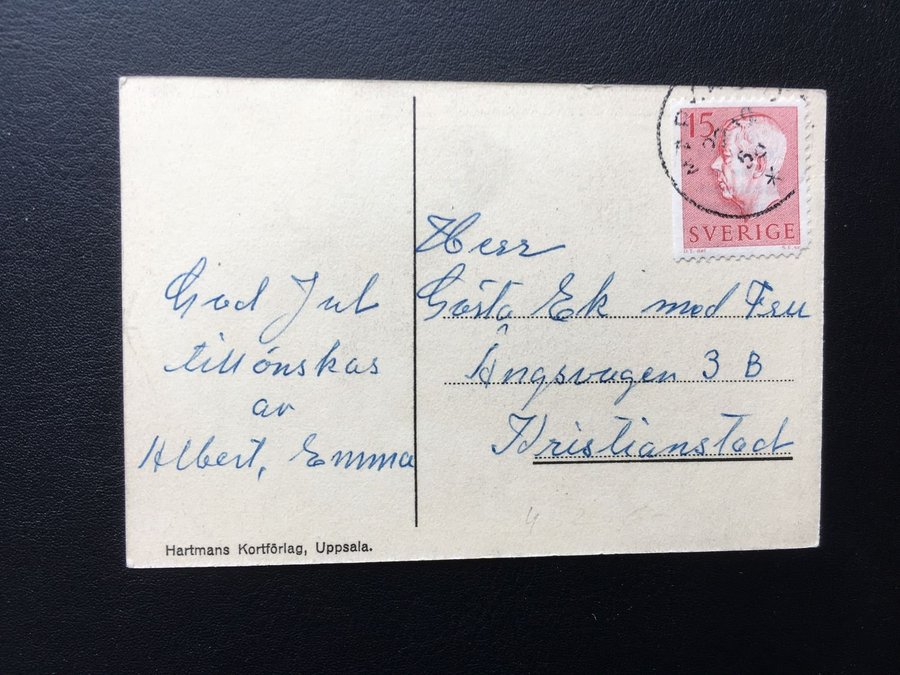 God Jul
tillönskas
av
Albert, Emma
Hartmans Kortförlag, Uppsala.
15
SVERIGE
Herr
Gösta Ek med Fru
Ängsvagen 3 B
Kristianstad